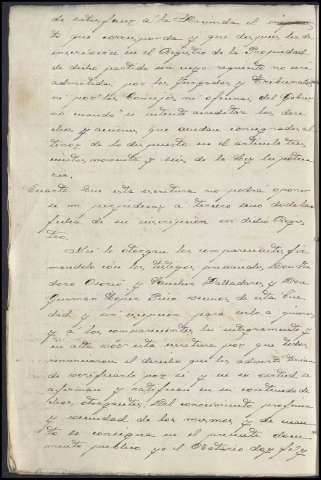 de satisfacer á la Hacienda el
to que corresponda y que despues ha de
inscribirse en el Registro de la Propiedad
de dicho partido sin cuyo requisito no será
admitida por los Juzgados y Tribunales
ni por los Consejos ni oficinas del Gobier
no cuando se intente acreditar los dere
chos y acciones que quedan consignados al
tenor de lo dispuesto en el artículo tres
cientos noventa y seis de la Ley hipoteca
ria.
Cuarto Que esta escritura no podrá oponer
se ni perjudicar á tercero sino desde la
fecha de su inscripcion en dicho Regis
tro.
Así lo otorgan los comparecientes fir
mandolo con los testigos presenciales, Don
Osorio y Valladares, y Don
vecinos de esta Ciu
dad y sin excepcion para serlo á quienes
y á los comparecientes leí integramente y
en alta voz esta escritura por que todos
renunciaron el derecho que les advertí tenian
de verificarlo por sí y en su contenido
se afirman y ratifican
otorgantes. Del conocimiento, profesion
y vecindad de los mismos y de cuan
to se consigna en el presente docu
mento público yo el Notario doy fé